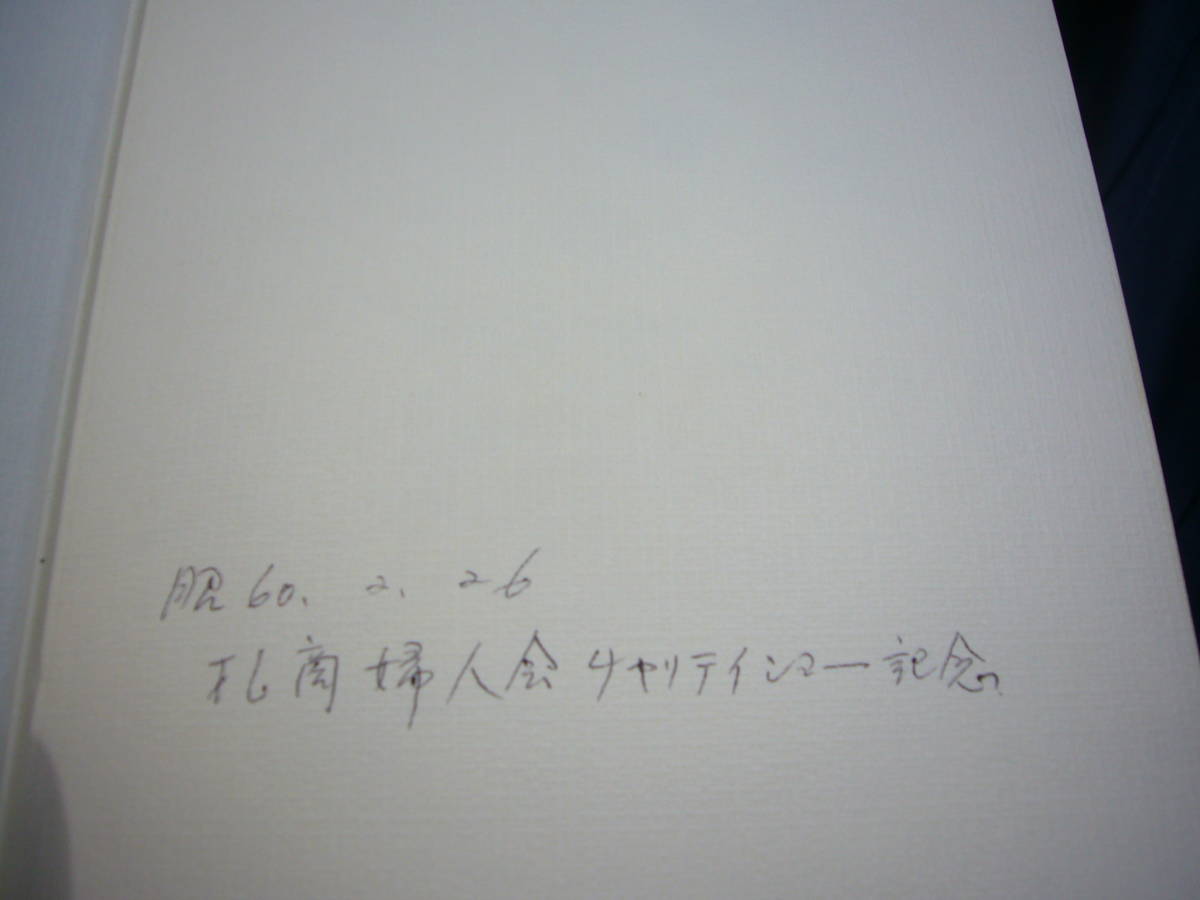 昭60. 2. 26
札商婦人会チャリティショー記念